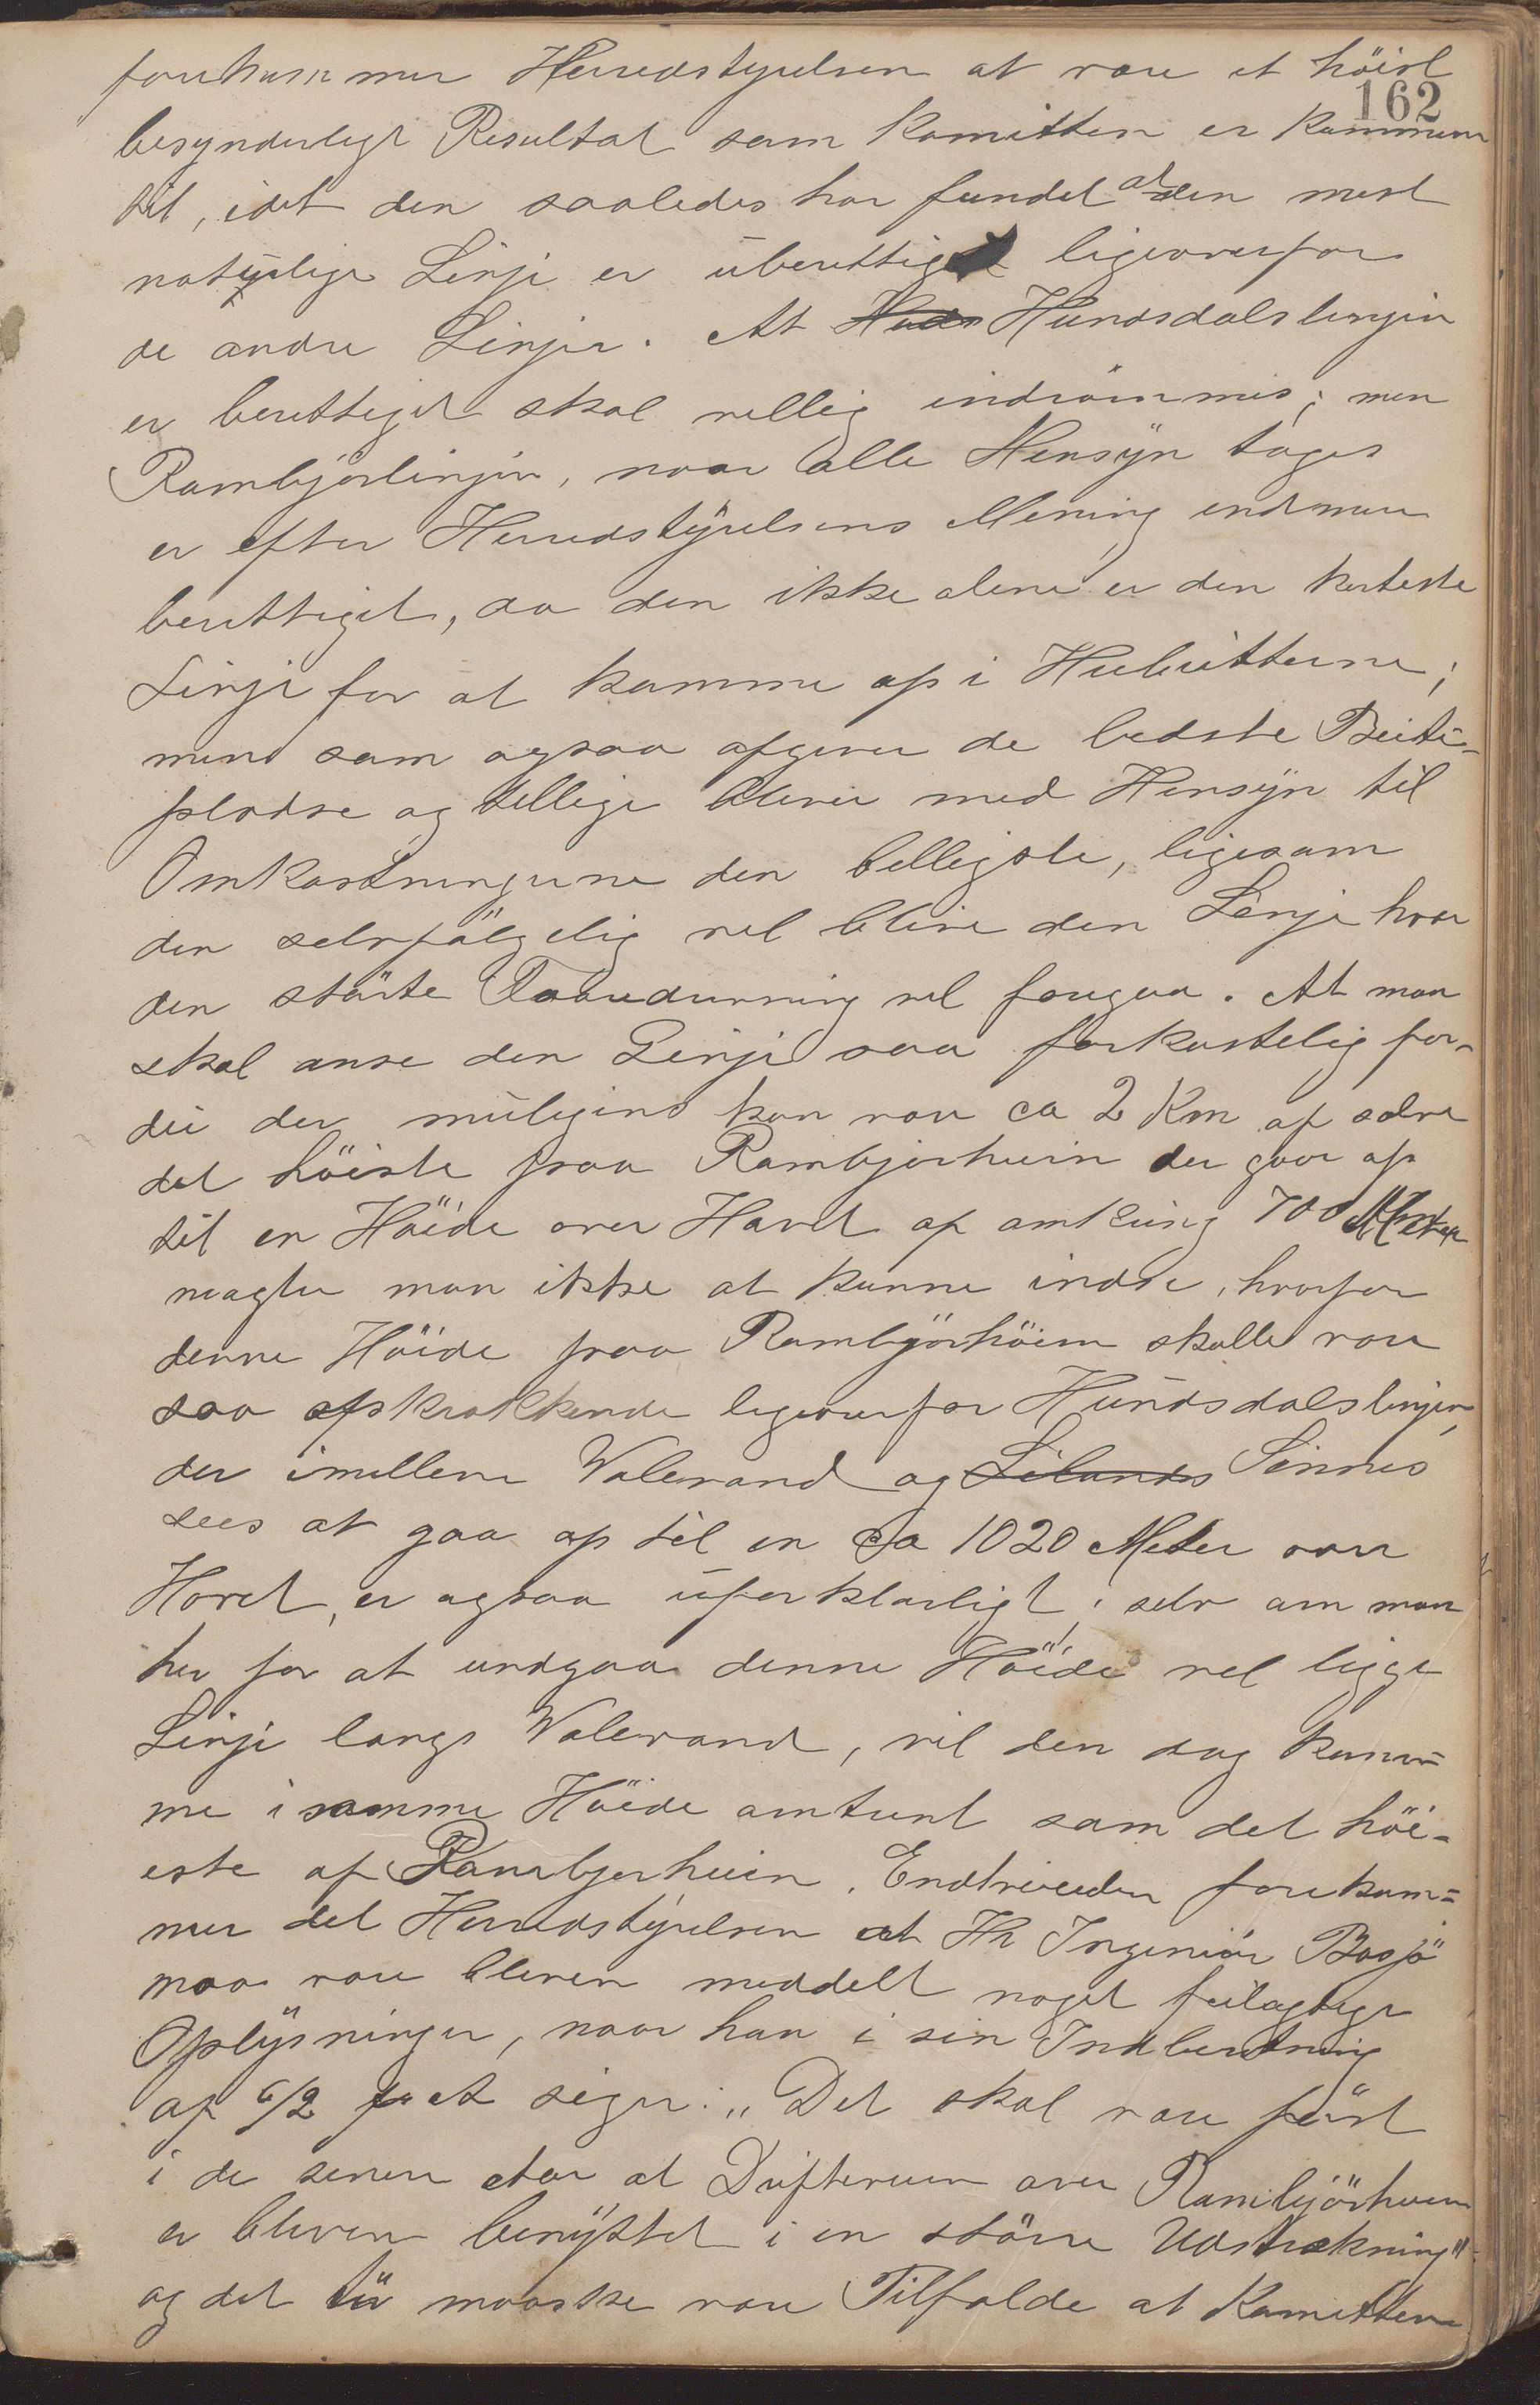 forekommer Herredstyrelsen at være et höist
162
besynderligt Resultat som Komitten er kommen
til, idet den saaledes har fundet at den mest
natürlige Linje er überettiget ligeoverfor
de andre Linjer. At Hunds Hundsdalslinjen
er berettiget skal villig indrömmes; men
Rambjörlinjen, naar alle Hensÿn tages
er efter Herredstÿrelsens Mening end mere
berettiget, da den ikke alene er den korteste
Linje for at komme op i Heibeitterne;
men som ogsaa afgiver de bedste Beite-
pladse og tillige bliver med Hensÿn til
Omkostningerne den billigste, ligesom
den selvfölgelig vil blive den Linje hvor
den störste Faaredrivning vil foregaa. At man
skal anse den Linje saa forkastelig for-
di der muligens kan være ca 2 Km af selve
det höieste paa Rambjørheien der gaar op
til en Höide over Havet af omkring 700 Meter
magter man ikke at kunne indse, hvorfor
denne Höide paa Rambjörhöien skulle være
saa afskrækkende ligeoverfor Hundsdalslinjen,
der imellem Valevand og Lilands Sinnes
sees at gaa op til en ca 1020 Meter over
Havet, er ogsaa uforklarligt; selv om man
her for at undgaa denne Höide vil ligge
Linje langs Valevand, vil den dog kom-
me i samme Höide omtrent som det höi-
este af Rambjørheien. Endvidere forekom-
mer det Herredstÿrelsen at Hr Ingeniör Bosjö
maa være bleven meddelt noget feilagtige
Oplÿsninger, naar han i sin Indberetning
af 6/2 siger: „Det skal være först
i de senere Aar at Drifteveien over Rambjörheien
er bleven benÿttet i en större Udstrækning"
og det tör maaske være Tilfælde at Komitteen